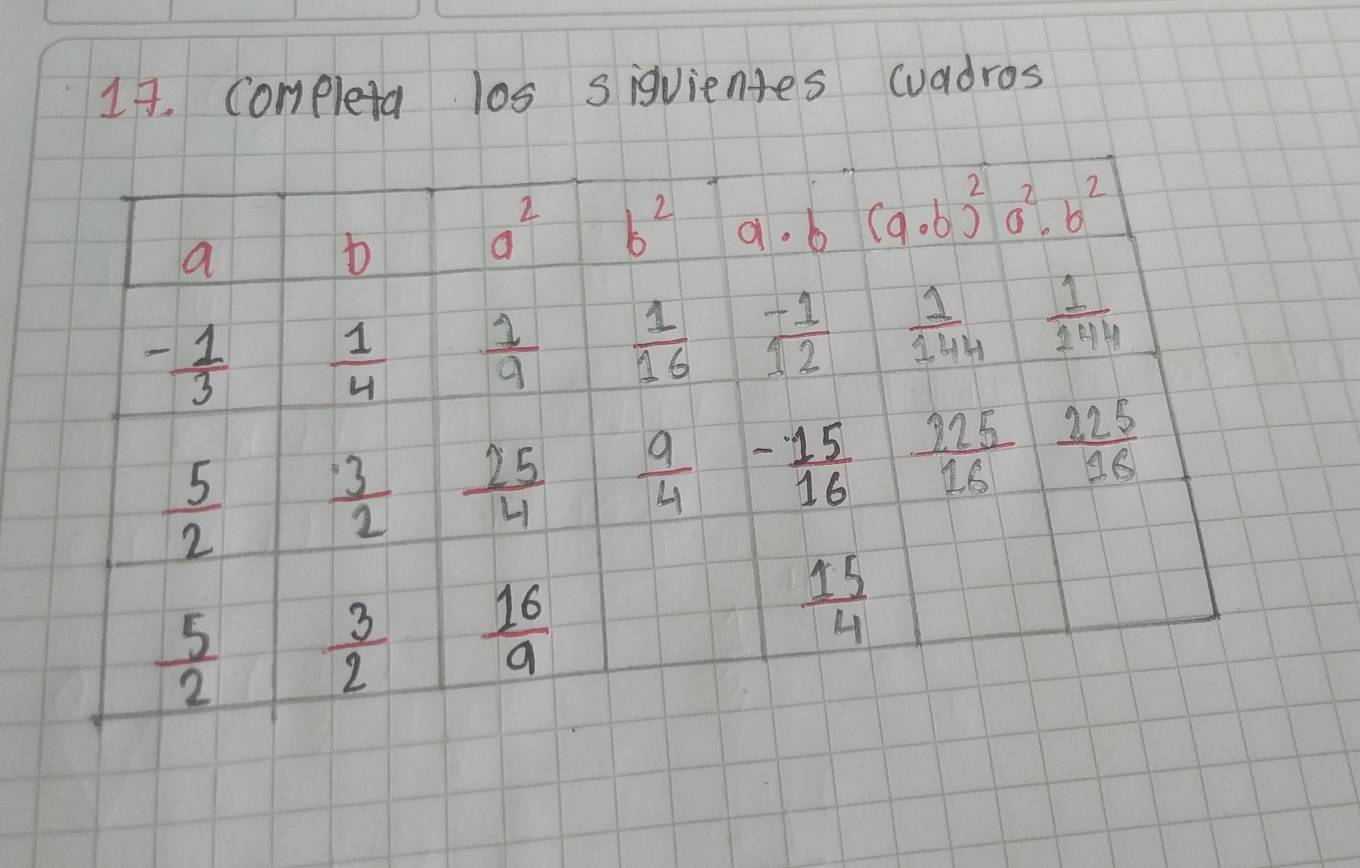 17. completa los siguientes cuadros
a b a² b² a·b (a·b)² a²·b²
-1/3 1/4 1/9 1/16 -1/12 1/144 1/144
5/2 3/2 25/4 9/4 -15/16 225/16 225/16
5/2 3/2 16/9 15/4